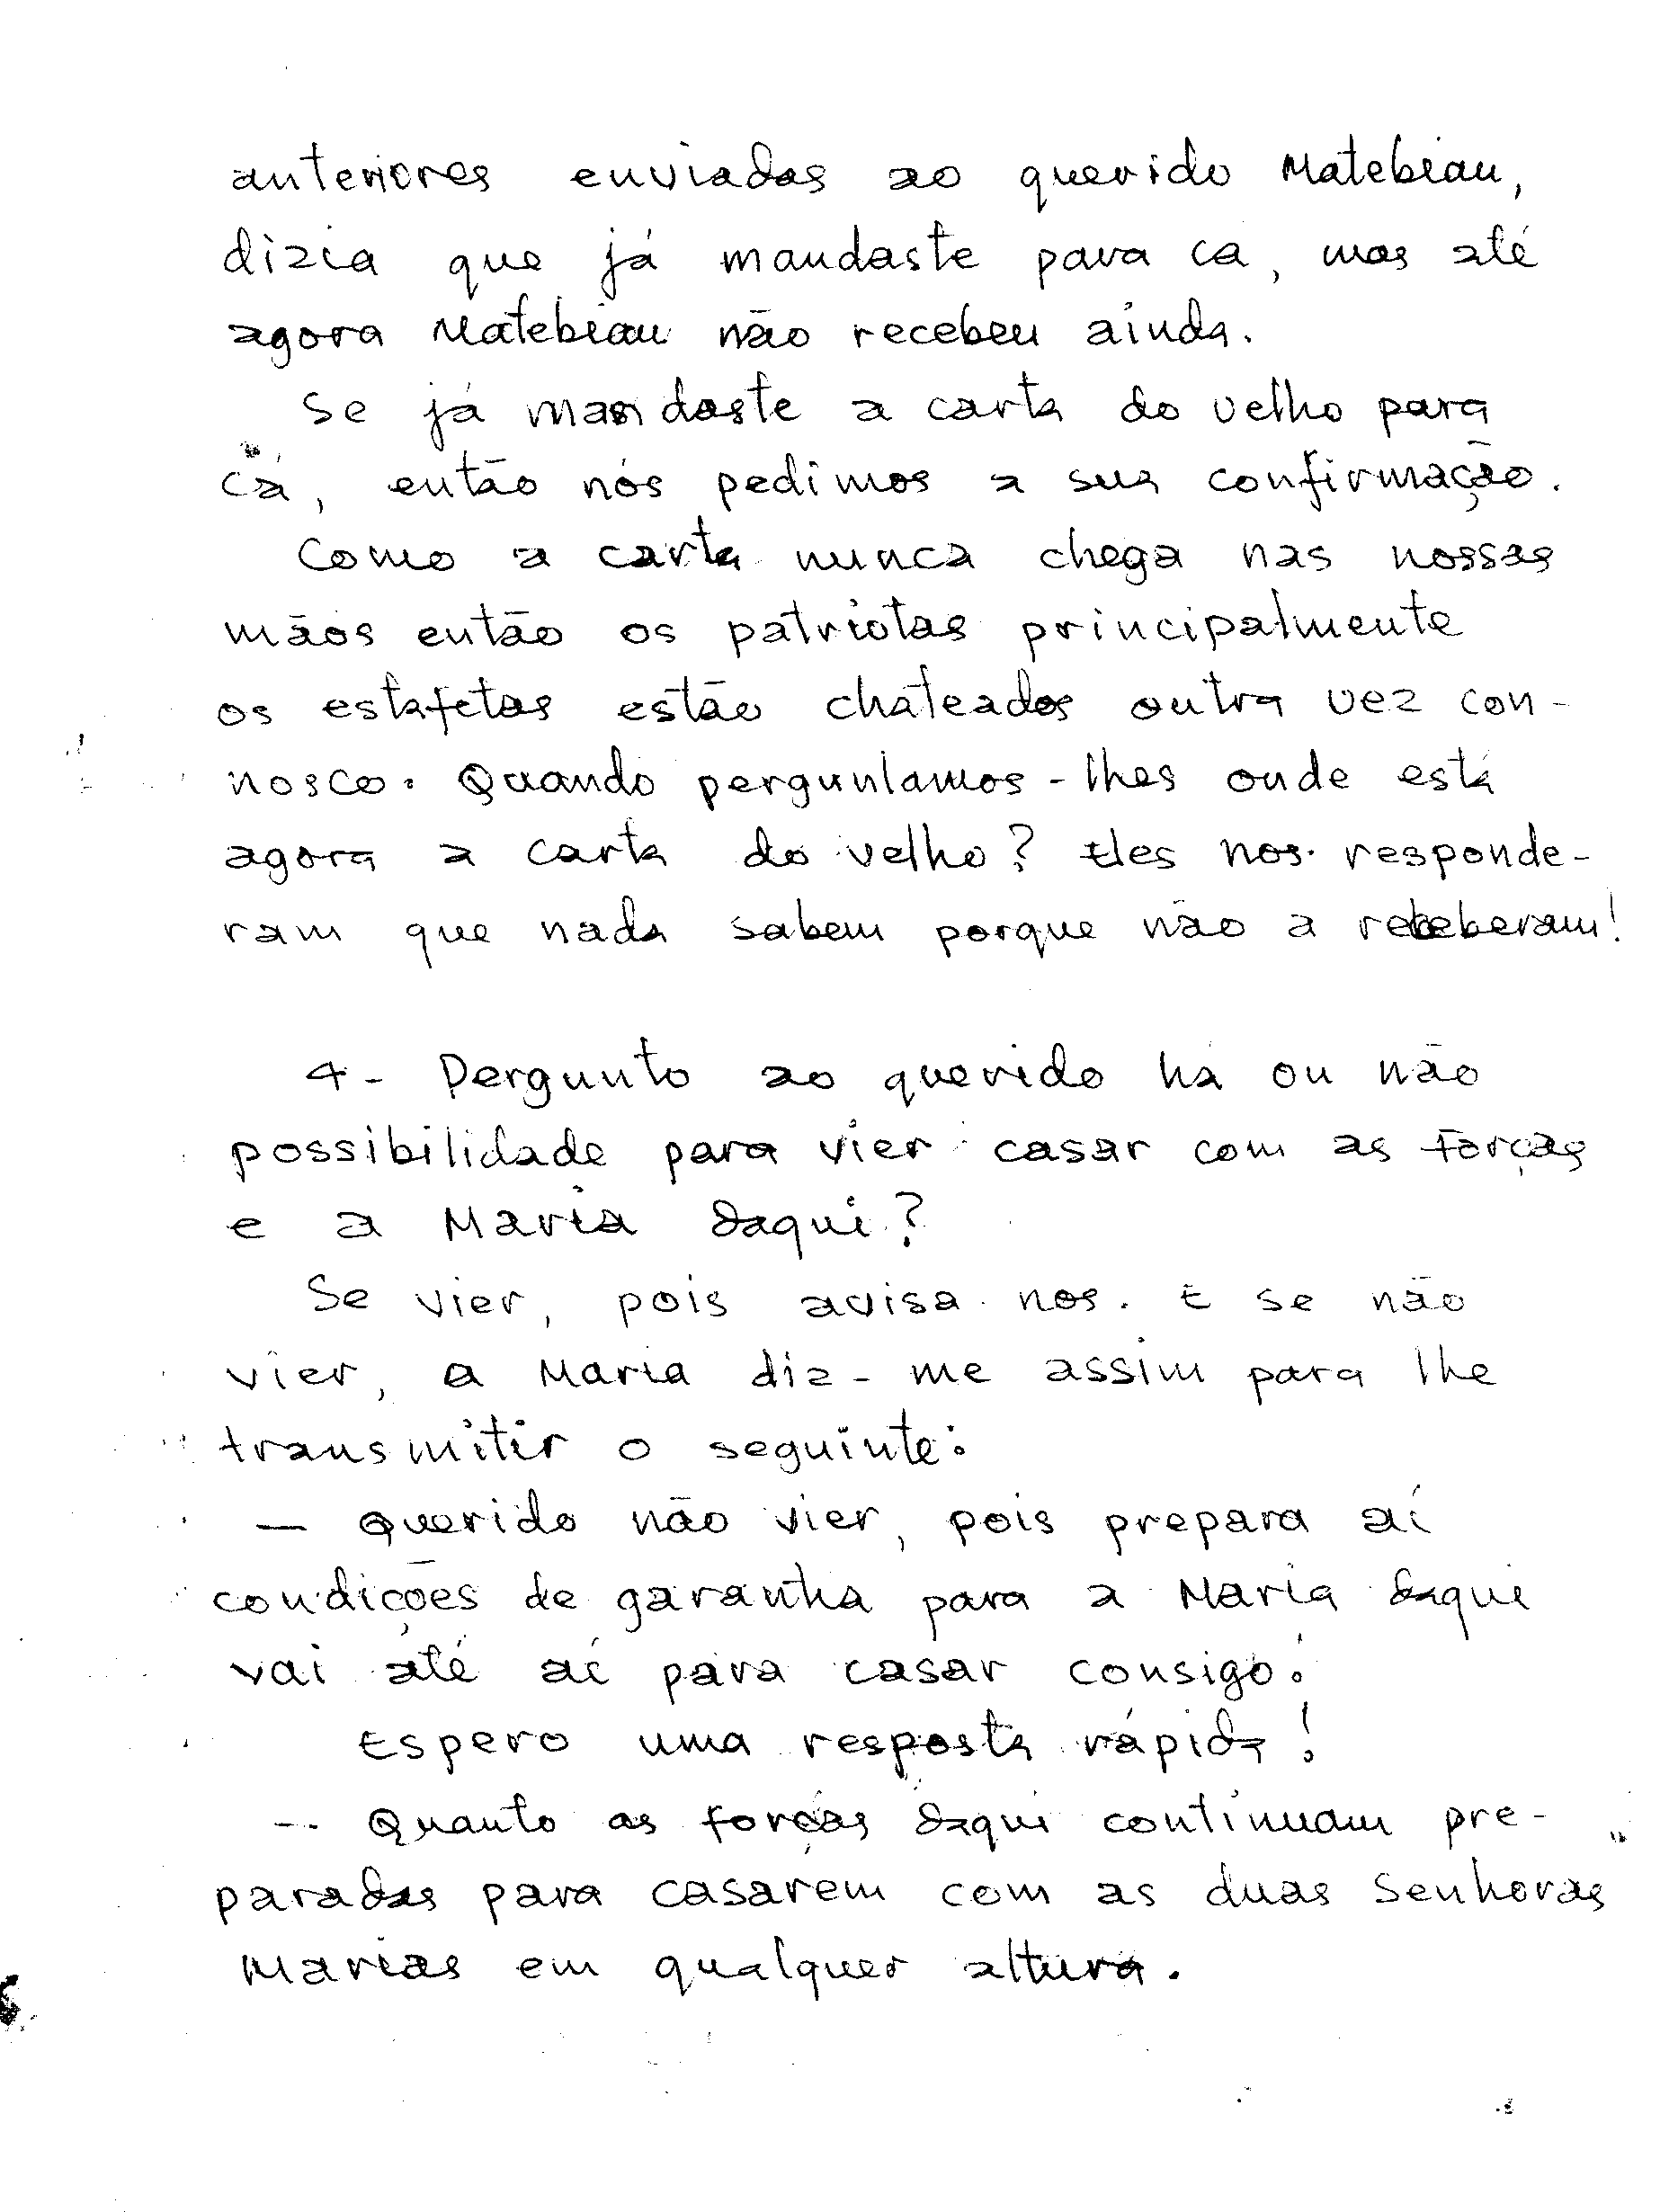 anteriores enviadas ao querido Matebian,
dizia que já mandaste para cá, mas até
agora Matebian não recebeu ainda.
Se já mandaste a carta do velho para
cá, então nós pedimos a sua confirmação.
Como a carta nunca chega nas nossas
mãos então os patriotas principalmente
os estafetas estão chateados outra vez con-
nosco. Quando perguntamos-lhes onde está
agora a carta do velho? Eles nos responde-
ram que nada sabem porque não a receberam!
4- Pergunto ao querido há ou não
possibilidade para vier casar com as Forças
e a Maria daqui?
Se vier, pois avisa-nos. E se não
vier, a Maria diz-me assim para lhe
transmitir o seguinte:
— Querido não vier, pois prepara aí
condições de garantia para a Maria daqui
vai até aí para casar consigo!
Espero uma resposta rápida!
— Quanto as forças daqui continuam pre-
paradas para casarem com as duas Senhoras
Marias em qualquer altura.